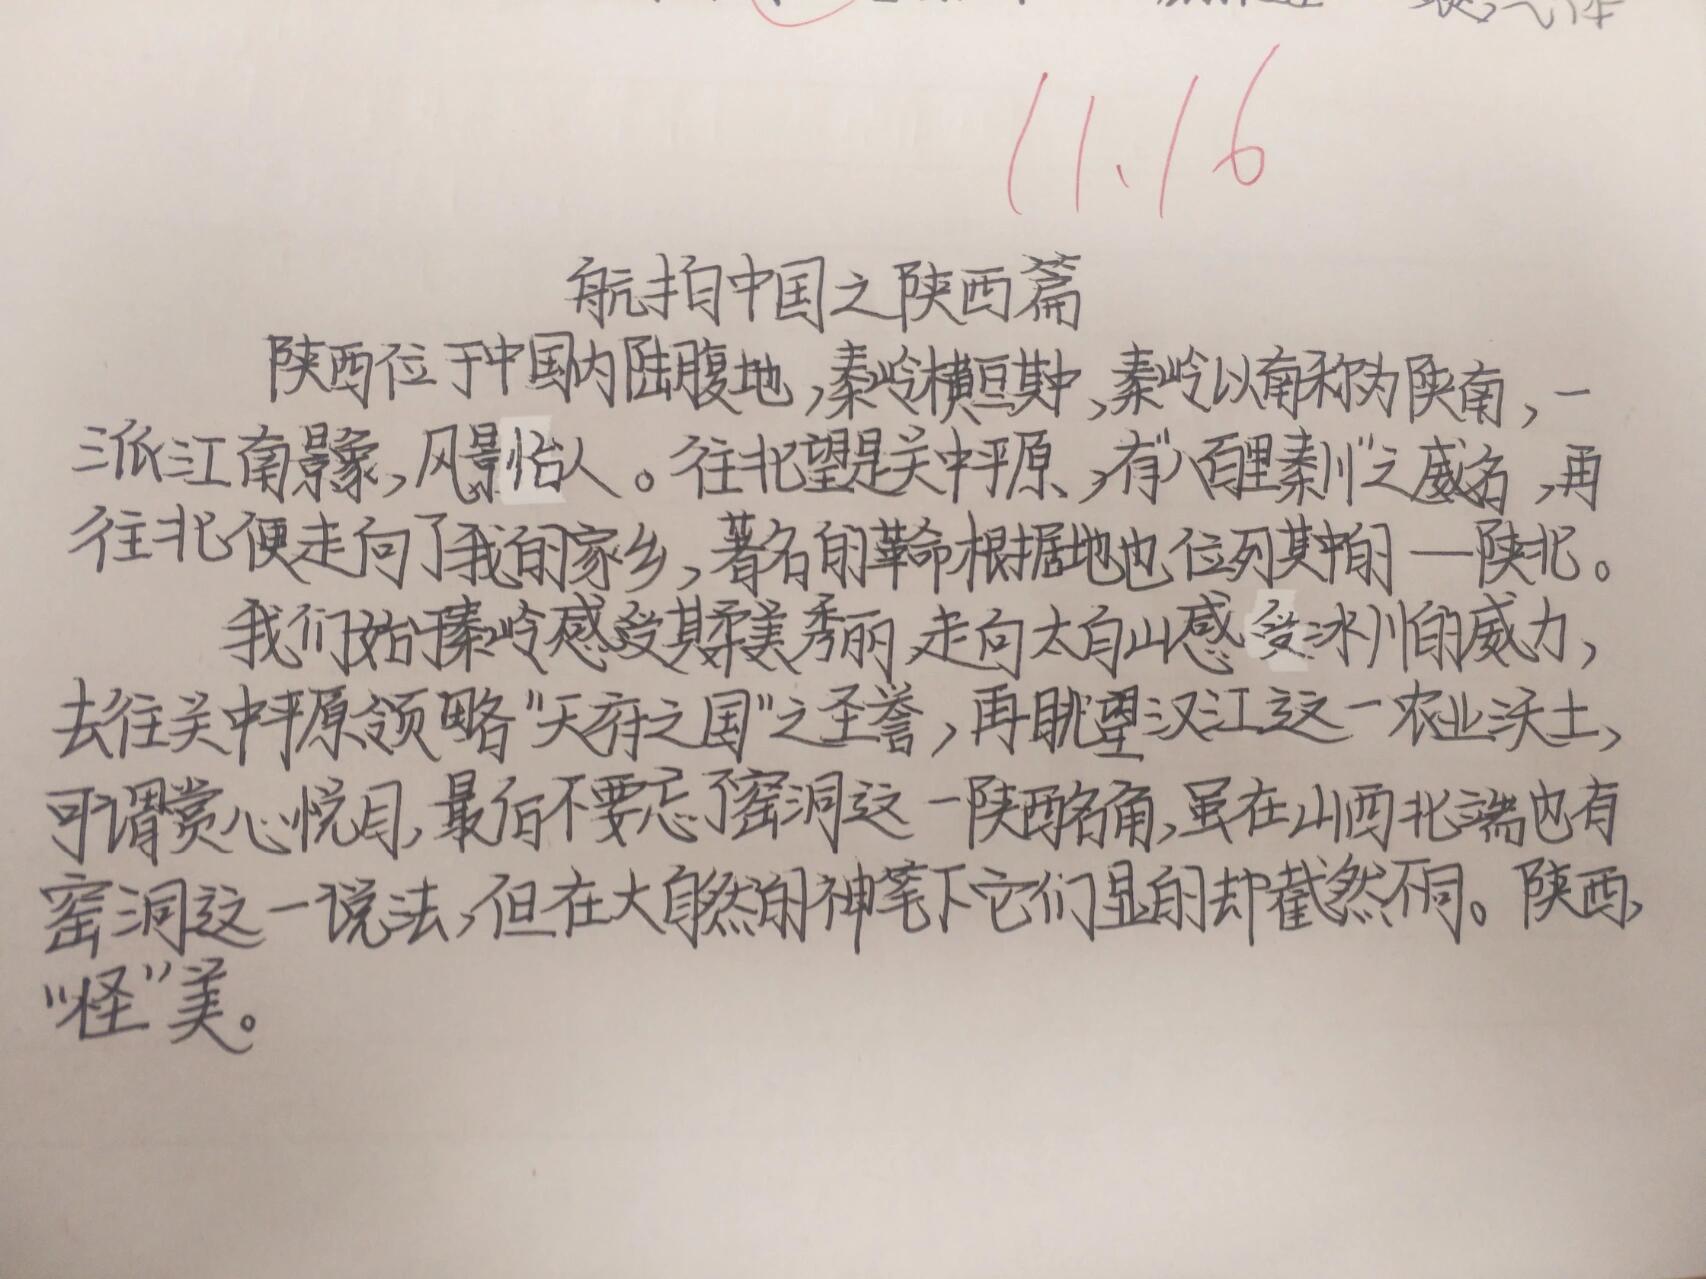 11.16
航拍中国之陕西篇
陕西位于中国内陆腹地,秦岭横亘其中,秦岭以南称为陕南,一
派江南景象,风景怡人。往北望是关中平原,有"八百里秦川"之威名,再
往北便走向了我的家乡,著名的革命根据地也位列其中的——陕北。
我们始于秦岭感受其柔美秀丽,走向太白山感受冰川的威力,
去往关中平原领略"天府之国"之圣誉,再眺望汉江这一农业沃土,
可谓赏心悦目,最后不要忘了窑洞这一陕西名角,虽在山西北端也有
窑洞这一说法,但在大自然的神笔下它们显的却截然不同。陕西,
"怪"美。